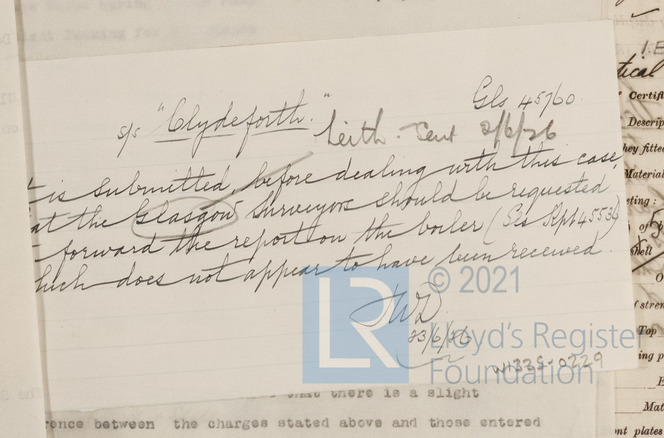 Gls 45760.
s/s "Clydeforth."
Leith. Sent 2/6/26
t is submitted, before dealing with this case,
at the Glasgow Surveyors should be requested
forward the report on the boiler (Gls Rpt 45534)
hich does not appear to have been received.
JWD
23/6/26
LR
© 2021
Lloyd's Register
Foundation
W1335-0229
that there is a slight
rence between the charges stated above and those entered
tical
Certifi
Descrip
hey fitted
Material
eting :
of
shell
O
f stren
Top
ing p
E
Mat
nt plates